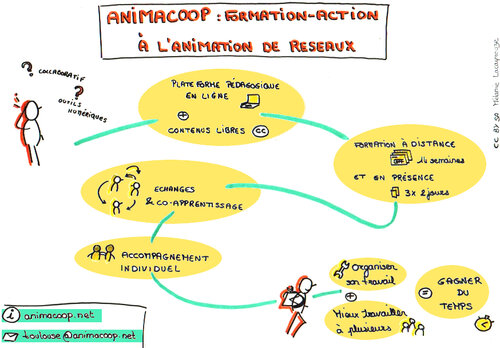 ANIMACOOP : FORMATION-ACTION
À L'ANIMATION DE RESEAUX
?
COLLABORATIF
?
OUTILS
NUMÉRIQUES
PLATEFORME PÉDAGOGIQUE
EN LIGNE
+
CONTENUS LIBRES CC
FORMATION À DISTANCE
14 semaines
ET EN PRÉSENCE
3x 2 jours
ECHANGES
& CO-APPRENTISSAGE
ACCOMPAGNEMENT
INDIVIDUEL
Organiser
son travail
+
Mieux Travailler
à plusieurs
=
GAGNER
DU
TEMPS
i animacoop.net
toulouse@animacoop.net
CC BY SA Mélanie Lacayrouze